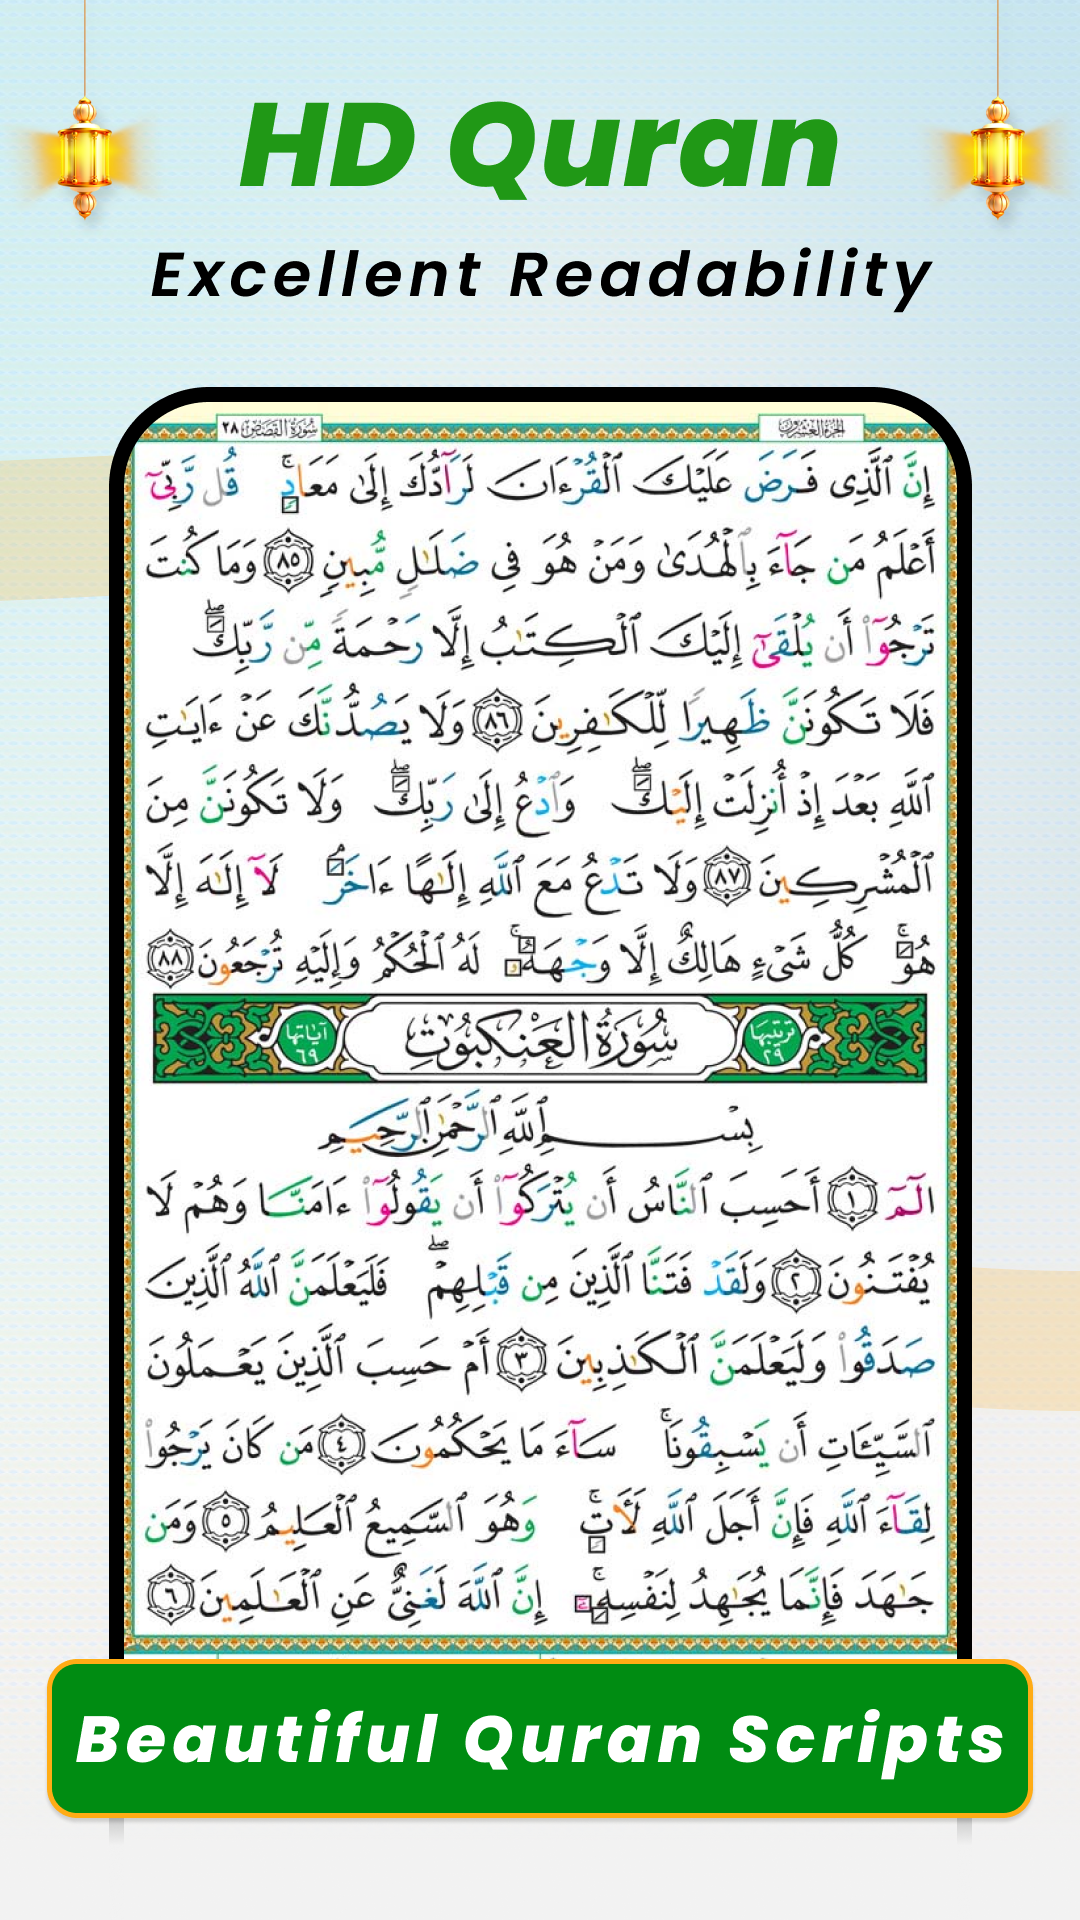 HD Quran
Excellent Readability
سُورَةُ القَصَصِ ٢٨
الجزء العشرون
إِنَّ ٱلَّذِى فَرَضَ عَلَيْكَ ٱلْقُرْءَانَ لَرَآدُّكَ إِلَىٰ مَعَادٍۚ قُل رَّبِّىٓ
أَعْلَمُ مَن جَآءَ بِٱلْهُدَىٰ وَمَنْ هُوَ فِى ضَلَـٰلٍ مُّبِينٍ ٨٥ وَمَا كُنتَ
تَرْجُوٓا۟ أَن يُلْقَىٰٓ إِلَيْكَ ٱلْكِتَـٰبُ إِلَّا رَحْمَةً مِّن رَّبِّكَۖ
فَلَا تَكُونَنَّ ظَهِيرًا لِّلْكَـٰفِرِينَ ٨٦ وَلَا يَصُدُّنَّكَ عَنْ ءَايَـٰتِ
ٱللَّهِ بَعْدَ إِذْ أُنزِلَتْ إِلَيْكَۖ وَٱدْعُ إِلَىٰ رَبِّكَۖ وَلَا تَكُونَنَّ مِنَ
ٱلْمُشْرِكِينَ ٨٧ وَلَا تَدْعُ مَعَ ٱللَّهِ إِلَـٰهًا ءَاخَرَۘ لَآ إِلَـٰهَ إِلَّا
هُوَۚ كُلُّ شَىْءٍ هَالِكٌ إِلَّا وَجْهَهُۥۚ لَهُ ٱلْحُكْمُ وَإِلَيْهِ تُرْجَعُونَ ٨٨
ترتيبها ٢٩
سُورَةُ العَنْكَبُوتِ
آياتها ٦٩
بِسْمِ ٱللَّهِ ٱلرَّحْمَـٰنِ ٱلرَّحِيمِ
الٓمٓ ١ أَحَسِبَ ٱلنَّاسُ أَن يُتْرَكُوٓا۟ أَن يَقُولُوٓا۟ ءَامَنَّا وَهُمْ لَا
يُفْتَنُونَ ٢ وَلَقَدْ فَتَنَّا ٱلَّذِينَ مِن قَبْلِهِمْۖ فَلَيَعْلَمَنَّ ٱللَّهُ ٱلَّذِينَ
صَدَقُوا۟ وَلَيَعْلَمَنَّ ٱلْكَـٰذِبِينَ ٣ أَمْ حَسِبَ ٱلَّذِينَ يَعْمَلُونَ
ٱلسَّيِّـَٔاتِ أَن يَسْبِقُونَاۚ سَآءَ مَا يَحْكُمُونَ ٤ مَن كَانَ يَرْجُوا۟
لِقَآءَ ٱللَّهِ فَإِنَّ أَجَلَ ٱللَّهِ لَـَٔاتٍۚ وَهُوَ ٱلسَّمِيعُ ٱلْعَلِيمُ ٥ وَمَن
جَـٰهَدَ فَإِنَّمَا يُجَـٰهِدُ لِنَفْسِهِۦٓۚ إِنَّ ٱللَّهَ لَغَنِىٌّ عَنِ ٱلْعَـٰلَمِينَ ٦
Beautiful Quran Scripts